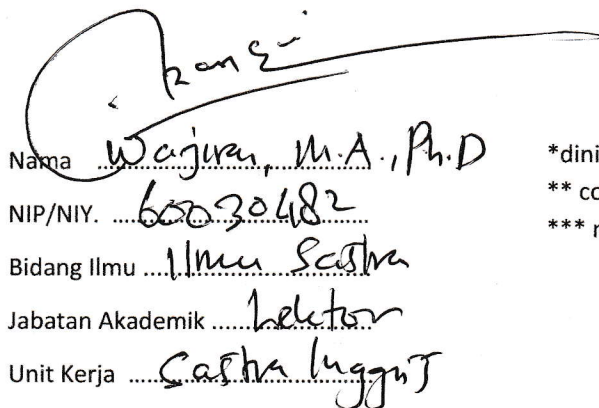 Nama Wajiran, M.A., Ph.D *dini
NIP/NIY. 60030482 ** co
Bidang Ilmu Ilmu Sastra *** r
Jabatan Akademik Lektor
Unit Kerja Sastra Inggris